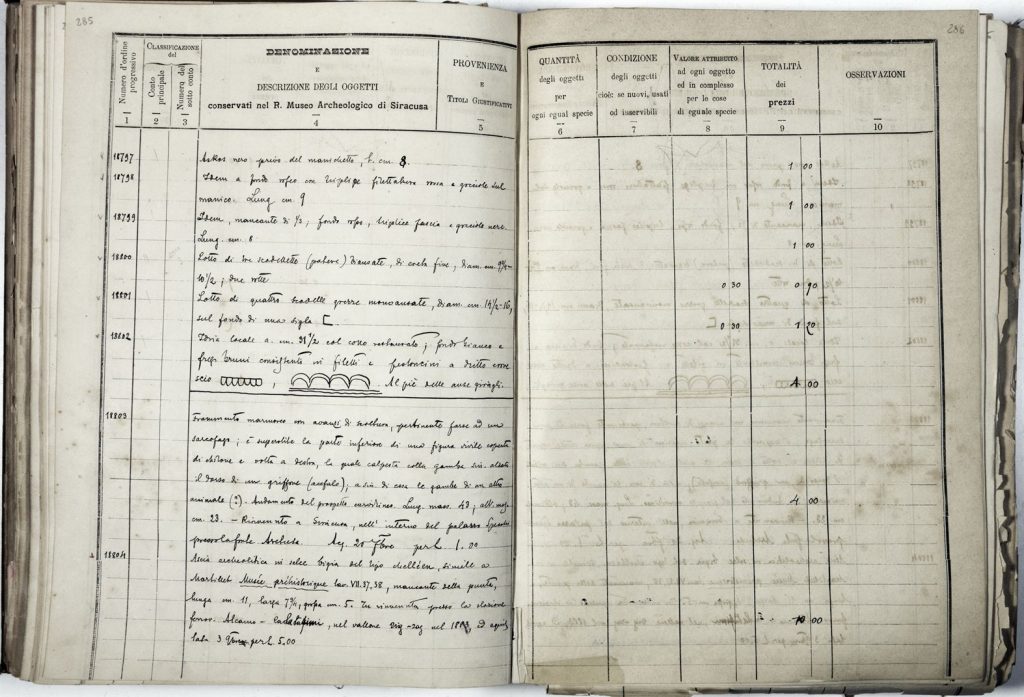 285
Numero d'ordine progressivo
CLASSIFICAZIONE del
Conto principale
Numero del sotto conto
DENOMINAZIONE
E
DESCRIZIONE DEGLI OGGETTI
conservati nel R. Museo Archeologico di Siracusa
PROVENIENZA
E
TITOLI GIUSTIFICATIVI
1 2 3 4 5
18797 Askos nero privo del manichetto, h. cm. 8.
18798 Idem a fondo roseo con triplice rossa e gocciole sul
manico. Lung. cm. 9
18799 Idem, mancante di 1/3; fondo roseo, triplice fascia e gocciole nere.
Lung. cm. 8
18800 Lotto di tre scodellette (patere) biansate, di creta fine, diam. cm.
10 1/2; due rotte
18801 Lotto di quattro scodelle grezze monoansate, diam. cm. 14 1/2-16,
sul fondo di una sigla
18802 Idria locale a. cm. 31 1/2 col collo restaurato; fondo bianco e
fregi bruni consistenti in filetti e festoncini a dritto e rove
scio , . Al piè delle anse girigogli.
18803 Frammento marmoreo con avanzi di scoltura, pertinente forse ad un
sarcofago; è superstite la parte inferiore di una figura virile coperta
di chitone e volta a destra, la quale calpesta colla gamba sin. alzata
il dorso di un griffone (acefalo); a sin. di esse le gambe di un altro
animale (?). Andamento del prospetto curvilineo. Lung. mass. 43; alt. mass.
cm. 23. - Rinvenuto a Siracusa, nell'interno del palazzo
presso la fonte Aretusa. Acq. 20 7bre per L. 1.00
18804 Ascia archeolitica in selce bigia del tipo chelléen, simile a
Mortillet Musée préhistorique tav. VII. 37, 38, mancante della punta,
lunga cm. 11, larga 7 3/4, grossa cm. 5. Fu rinvenuta presso la stazione
ferrov. Alcamo - Calatafimi, nel vallone Zig-zag nel ed
3 per L. 5.00
286
QUANTITÀ
degli oggetti
per
ogni egual specie
CONDIZIONE
degli oggetti
cioè: se nuovi, usati
od inservibili
VALORE ATTRIBUITO
ad ogni oggetto
ed in complesso
per le cose
di eguale specie
TOTALITÀ
dei
prezzi
OSSERVAZIONI
6 7 8 9 10
1 00
1 00
1 00
0 30 0 90
0 30 1 20
4 00
4 00
10 00